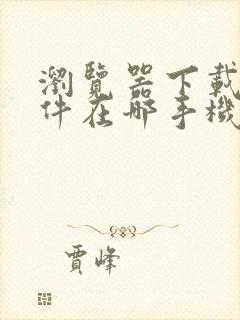 瀏覽器下載
件在哪手機
賈峰